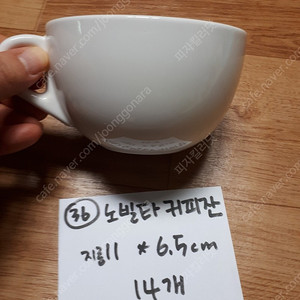 36 노빌타 커피잔
지름11 * 6.5cm
14개
cafe.naver.com/joonggonara